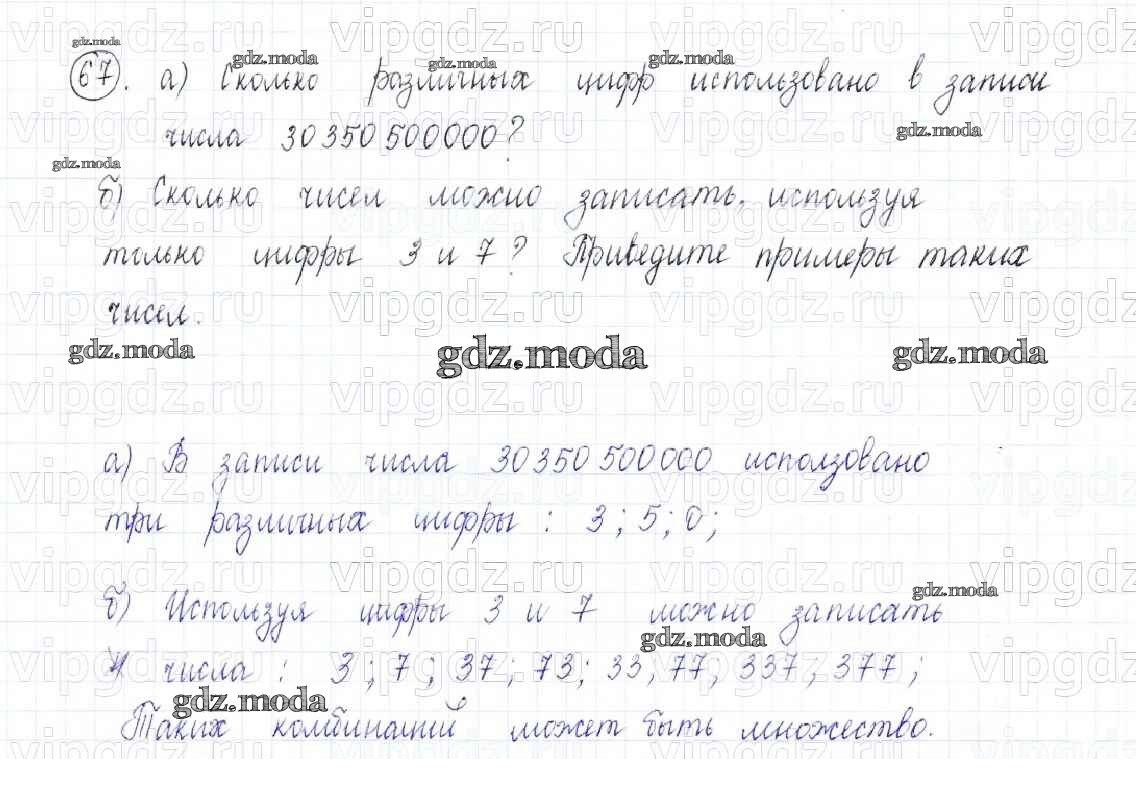 67. а) Сколько различных цифр использовано в записи
числа 30350500000?
б) Сколько чисел можно записать, используя
только цифры 3 и 7? Приведите примеры таких
чисел.
gdz.moda gdz.moda gdz.moda
а) В записи числа 30350500000 исползовано
три различных цифры: 3; 5; 0;
б) Используя цифры 3 и 7 можно записать
числа: 3; 7; 37; 73; 33, 77; 337; 377;
Таких комбинаций может быть множество.